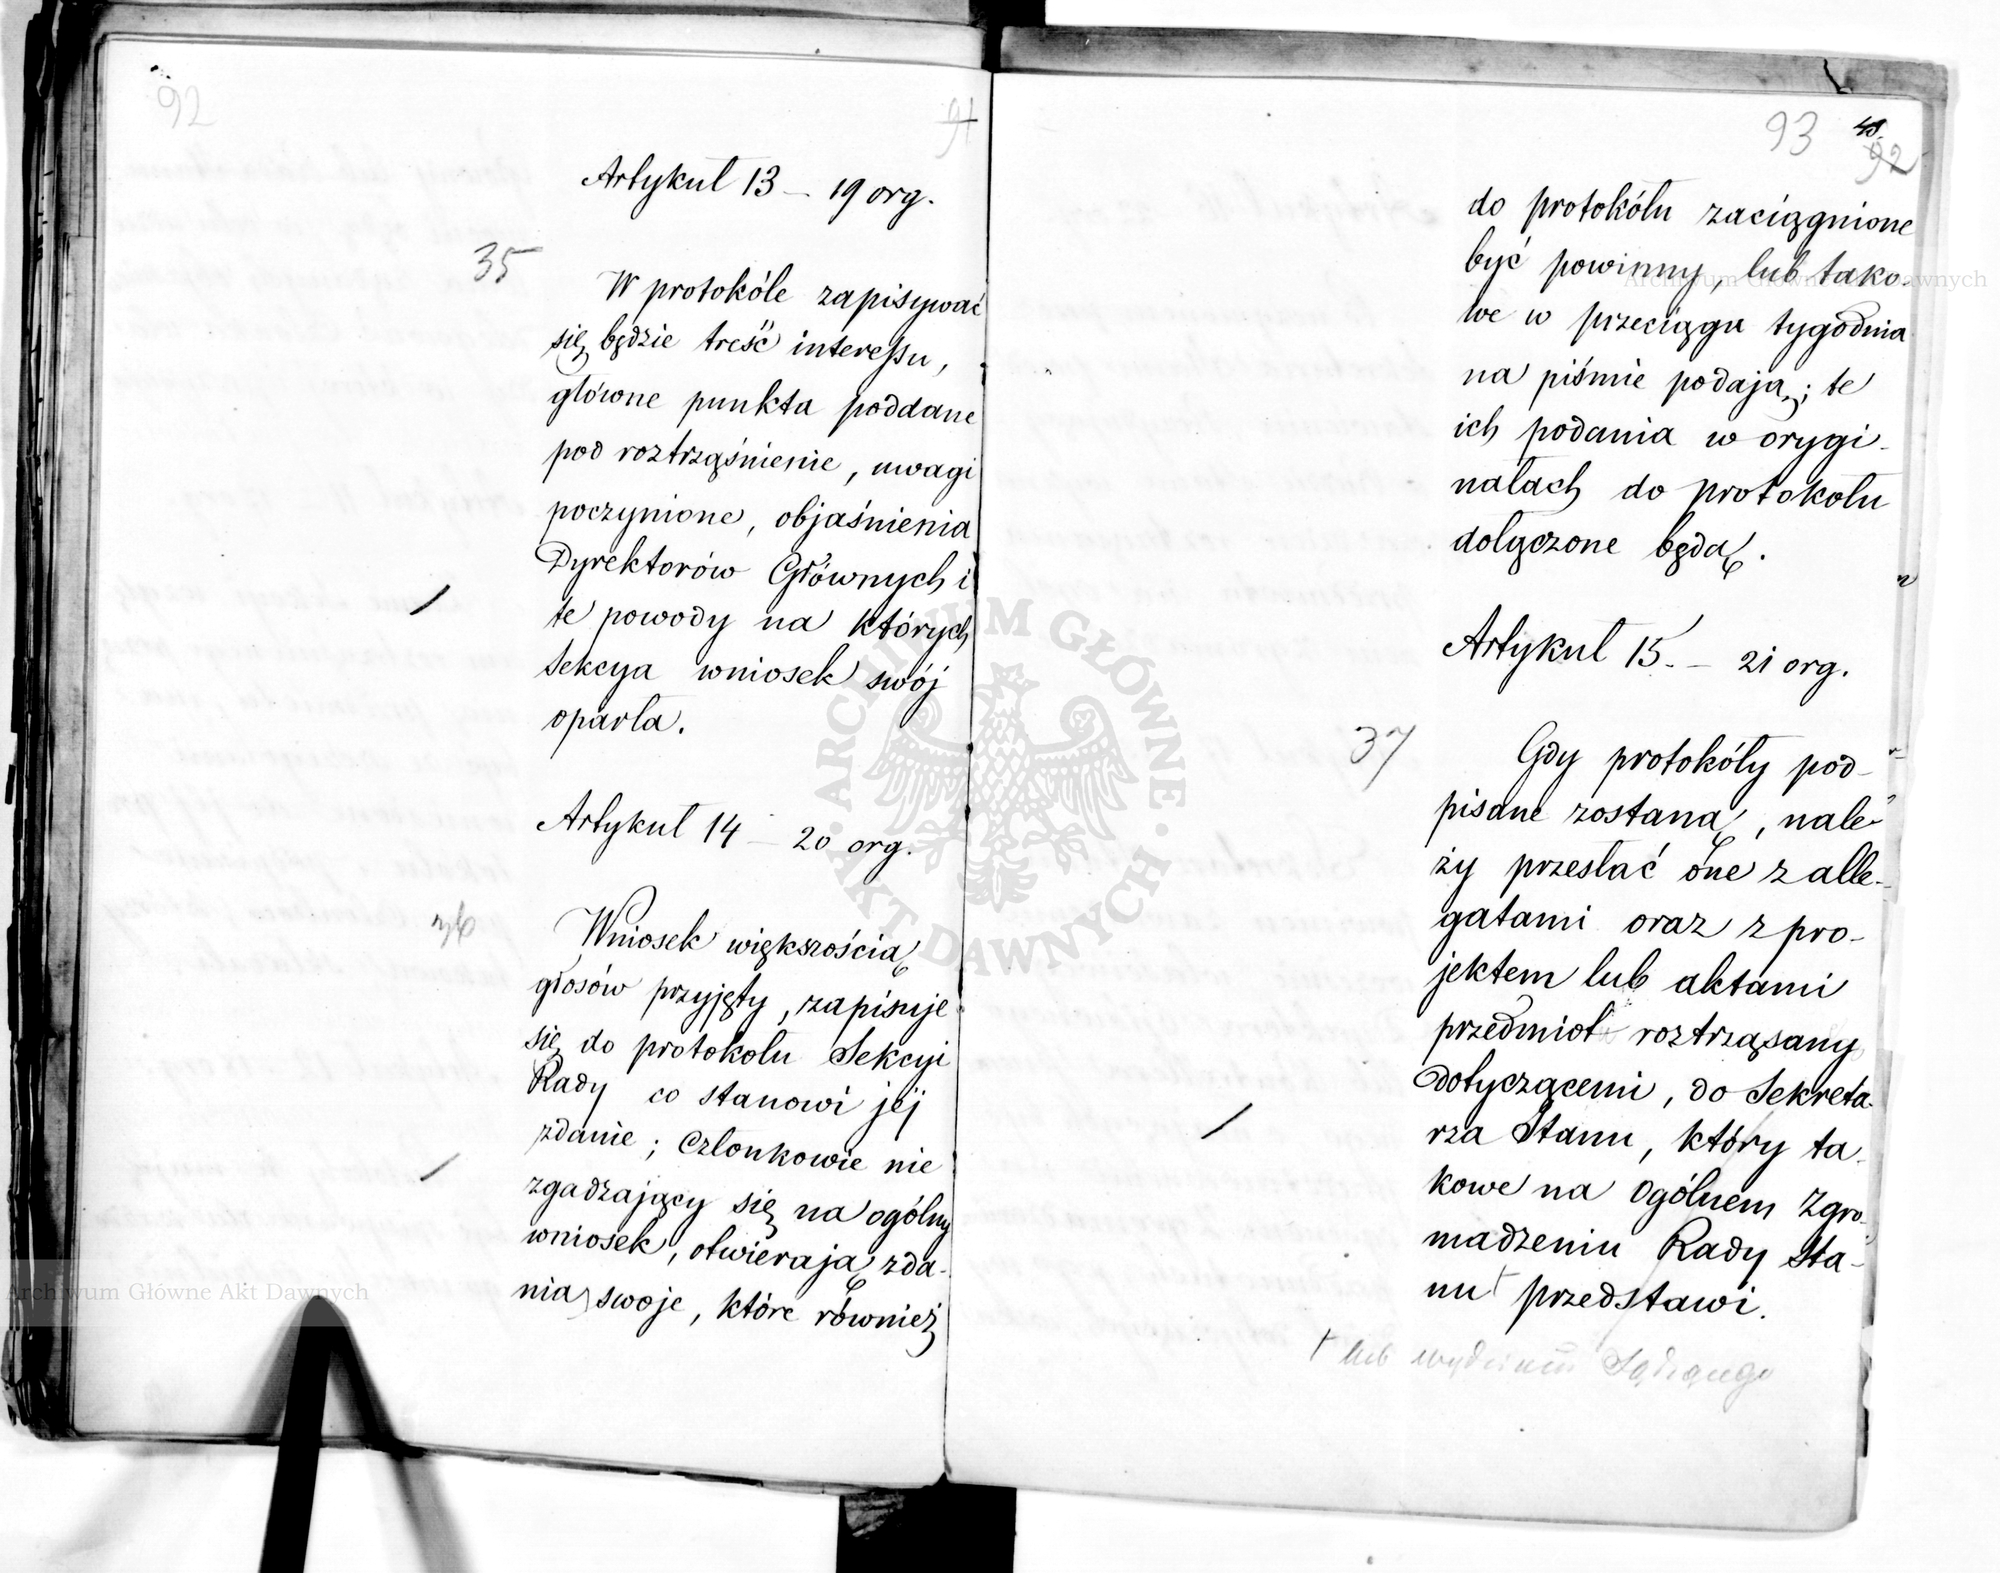 92
91
Artykuł 13 – 19 org.
35
W protokóle zapisywać
się będzie treść interessu,
główne punkta poddane
pod roztrząśnienie, uwagi
poczynione, objaśnienia
Dyrektorów Głównych i
te powody na których
Sekcya wniosek swój
oparła.
Artykuł 14 – 20 org.
36
Wniosek większością
głosów przyjęty, zapisuje
się do protokołu Sekcyi
Rady co stanowi jej
zdanie; Członkowie nie
zgadzający się na ogólny
wniosek, otwierają zda-
nia swoje, które również
93
48.
92
do protokółu zaciągnione
być powinny, lub tako-
we w przeciągu tygodnia
na piśmie podają; te
ich podania w orygi-
nałach do protokołu
dołączone będą.
Artykuł 15. – 21 org.
37
Gdy protokóły pod-
pisane zostaną, nale-
ży przesłać one z alle-
gatami oraz z pro-
jektem lub aktami
przedmiot roztrząsany
dotyczącemi, do Sekreta-
rza Stanu, który ta-
kowe na Ogólnem Zgro-
madzeniu Rady Sta-
nu + przedstawi.
+ lub Sądzącego
ARCHIWUM GŁÓWNE · AKT DAWNYCH ·
Archiwum Główne Akt Dawnych
Archiwum Główne Akt Dawnych